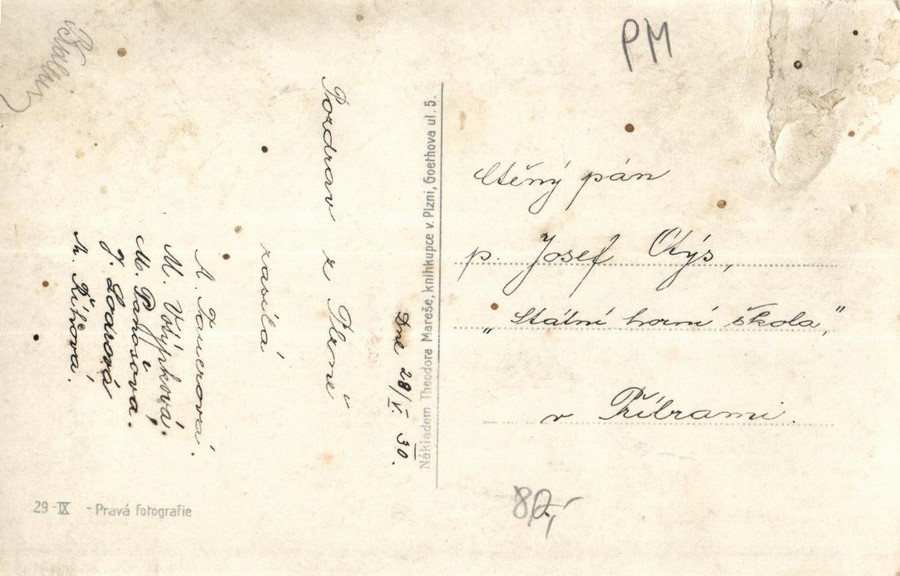 PM
Dne 28/VI 30.
Pozdrav z Plzně
zasílá
A. Fauerová.
M. Volýpková.
M. Panašová.
J. Lodrová
M. Říhová.
Nákladem Theodora Mareše, knihkupce v Plzni, Goethova ul. 5.
29-IX - Pravá fotografie
Ctěný pán
p. Josef Kýs,
„Státní horní škola,"
v Příbrami.
80,-